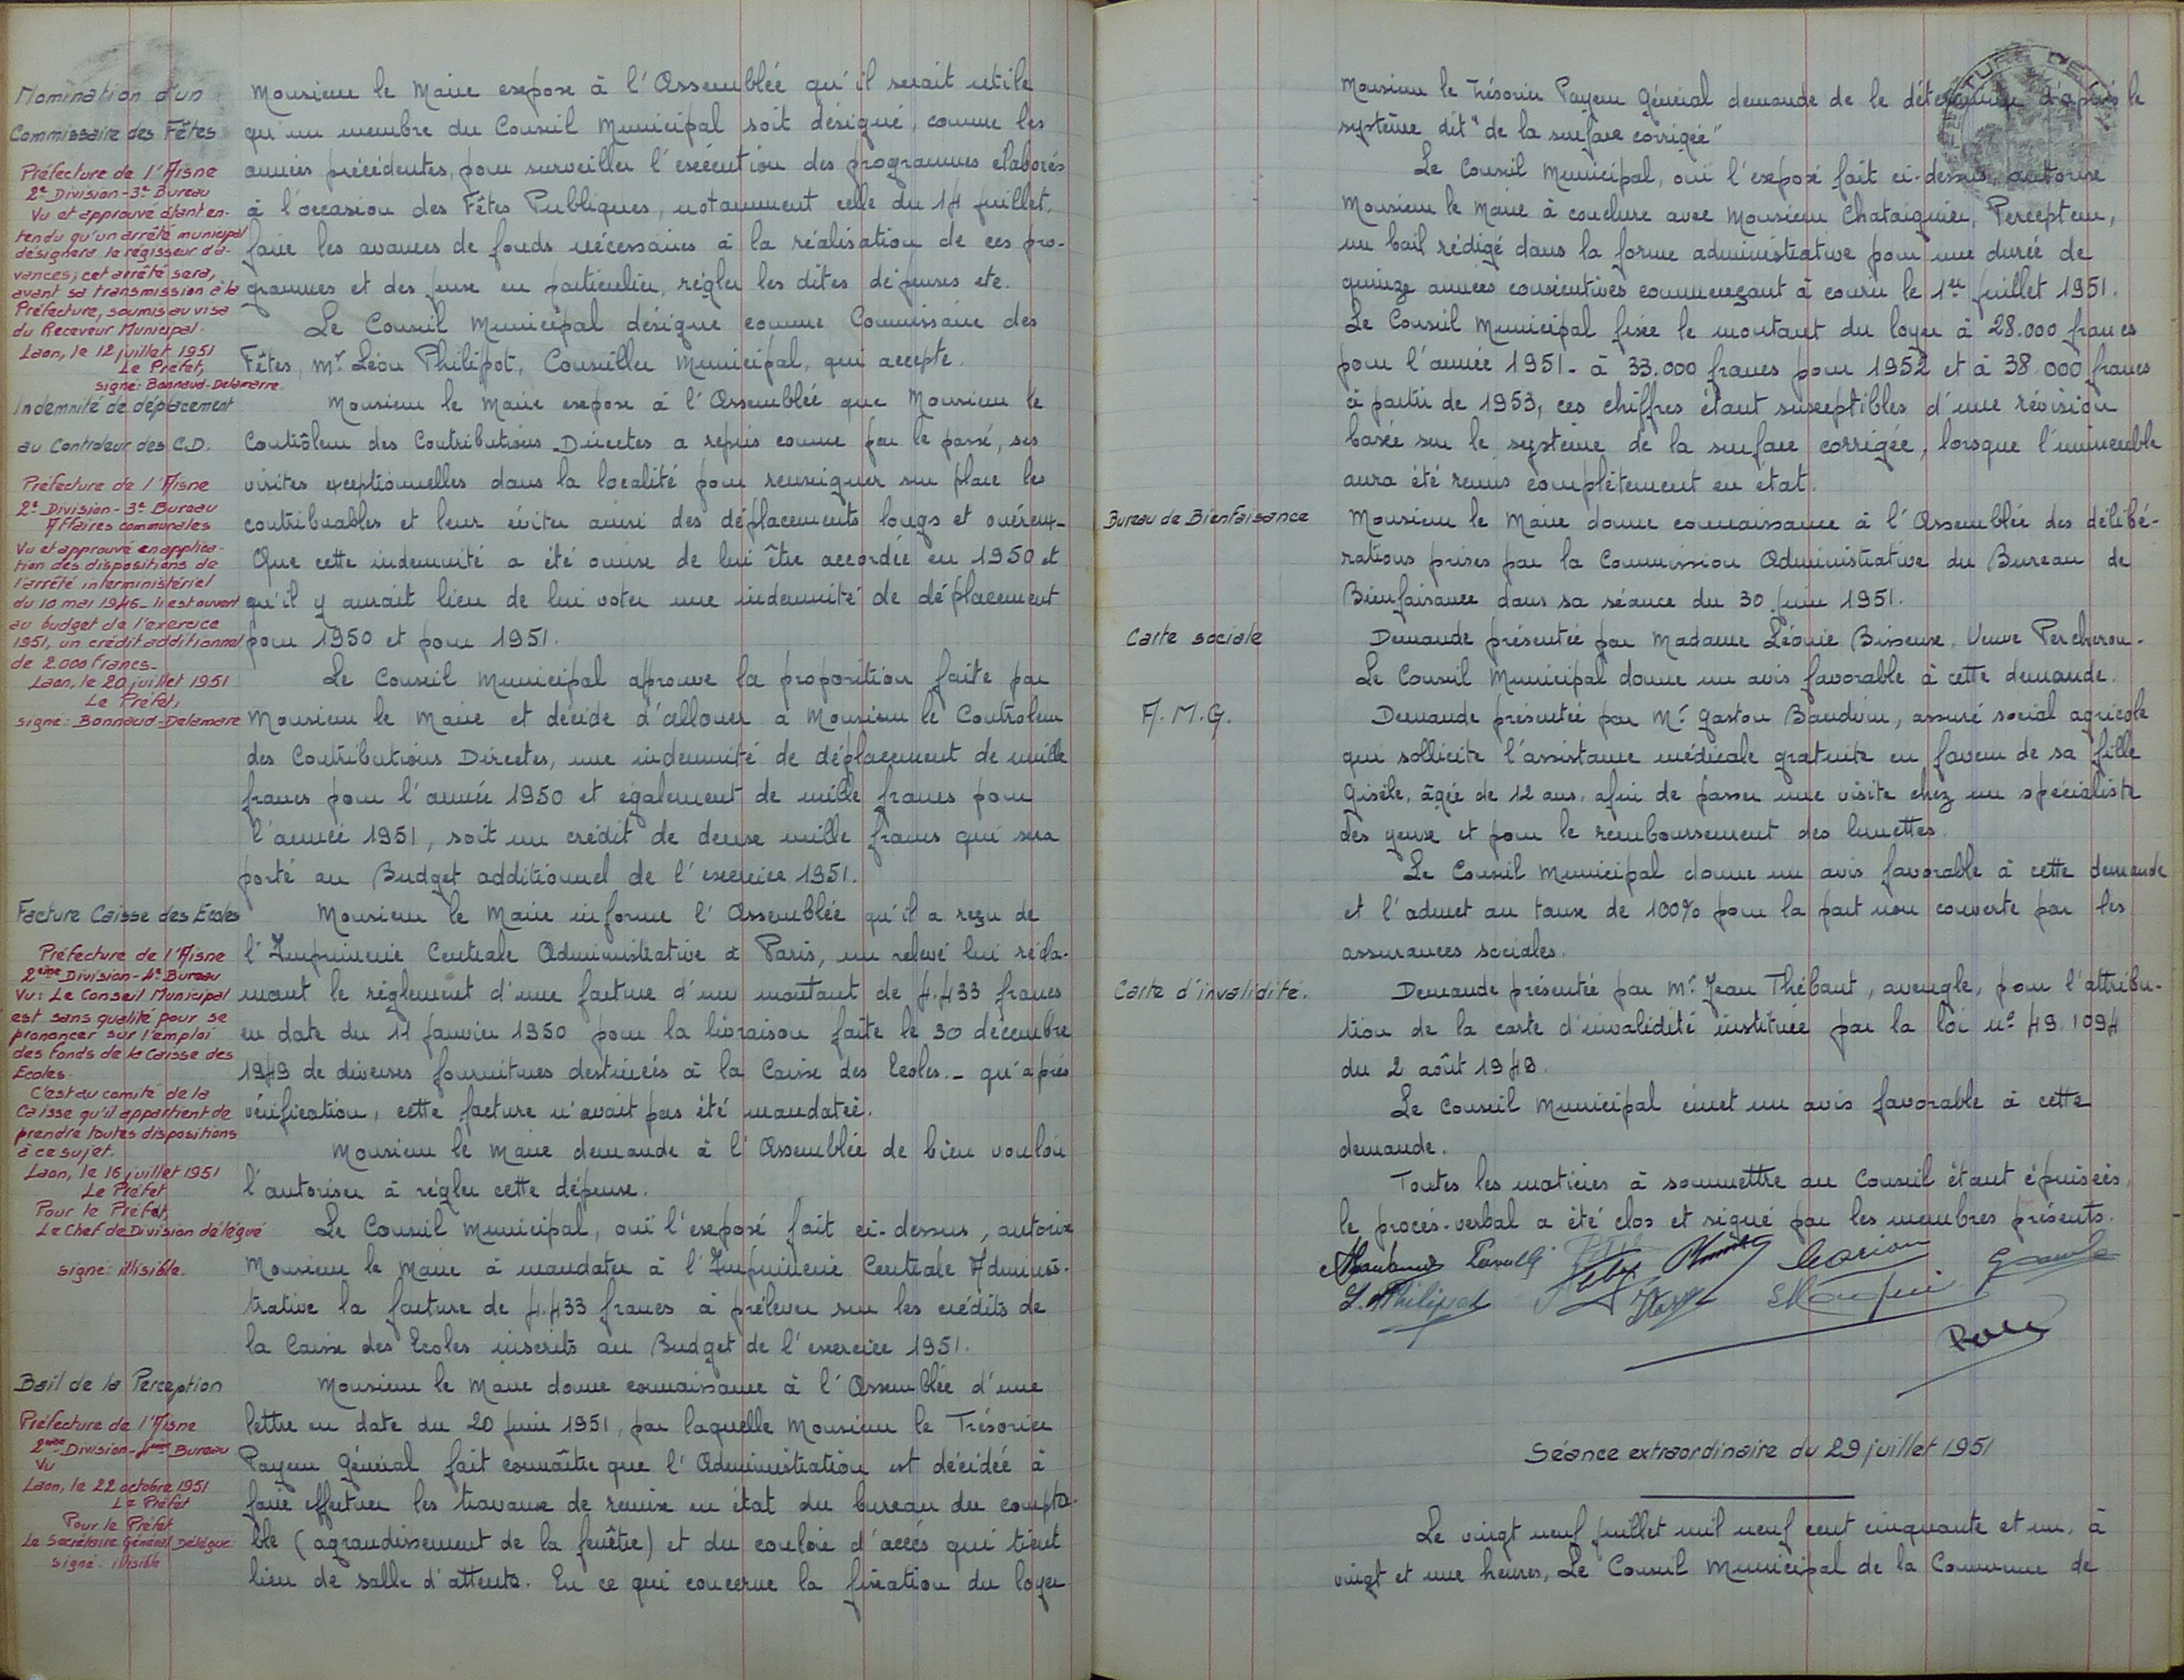 Nomination d'un
Commissaire des Fêtes
Préfecture de l'Aisne
2e Division - 3e Bureau
Vu et approuvé étant en-
tendu qu'un arrêté municipal
désignera le régisseur d'a-
vances; cet arrêté sera,
avant sa transmission à la
Préfecture, soumis au visa
du Receveur Municipal.
Laon, le 12 juillet 1951
Le Préfet,
signé: Bonnaud-Delamarre.
Monsieur le Maire expose à l'Assemblée qu'il serait utile
qu'un membre du Conseil Municipal soit désigné, comme les
années précédentes, pour surveiller l'exécution des programmes élaborés
à l'occasion des Fêtes Publiques, notamment celle du 14 juillet,
faire les avances de fonds nécessaires à la réalisation de ces pro-
grammes et des jeux en particulier, régler les dites dépenses etc.
Le Conseil Municipal désigne comme Commissaire des
Fêtes, Mr Léon Philipot, Conseiller Municipal, qui accepte.
Indemnité de déplacement
au Controleur des C.D.
Préfecture de l'Aisne
2e Division - 3e Bureau
Affaires communales
Vu et approuvé en applica-
tion des dispositions de
l'arrêté interministériel
du 10 mai 1946 - Il est ouvert
au budget de l'exercice
1951, un crédit additionnel
de 2000 francs -
Laon, le 20 juillet 1951
Le Préfet,
signé: Bonnaud-Delamare
Monsieur le Maire expose à l'Assemblée que Monsieur le
Contrôleur des Contributions Directes a repris comme par le passé, ses
visites exceptionnelles dans la localité pour renseigner sur place les
contribuables et leur éviter ainsi des déplacements longs et onéreux -
Que cette indemnité a été omise de lui être accordée en 1950 et
qu'il y aurait lieu de lui voter une indemnité de déplacement
pour 1950 et pour 1951.
Le Conseil Municipal aprouve la proposition faite par
Monsieur le Maire et décide d'allouer a Monsieur le Controleur
des Contributions Directes, une indemnité de déplacement de mille
francs pour l'année 1950 et également de mille francs pour
l'année 1951, soit un crédit de deux mille francs qui sera
porté au Budget additionnel de l'exercice 1951.
Facture Caisse des Ecoles
Préfecture de l'Aisne
2ème Division - 4e Bureau
Vu: Le Conseil Municipal
est sans qualité pour se
prononcer sur l'emploi
des fonds de la Caisse des
Ecoles.
C'est au comité de la
Caisse qu'il appartient de
prendre toutes dispositions
à ce sujet.
Laon, le 16 juillet 1951
Le Préfet
Pour le Préfet,
Le Chef de Division délégué
signé: illisible.
Monsieur le Maire informe l'Assemblée qu'il a reçu de
l'Imprimerie Centrale Administrative à Paris, un relevé lui récla-
mant le règlement d'une facture d'un montant de 4.433 francs
en date du 11 Janvier 1950 pour la livraison faite le 30 décembre
1949 de diverses fournitures destinées à la Caisse des Ecoles. - qu'après
vérification, cette facture n'avait pas été mandatée.
Monsieur le Maire demande à l'Assemblée de bien vouloir
l'autoriser à régler cette dépense.
Le Conseil Municipal, ouï l'exposé fait ci-dessus, autorise
Monsieur le Maire à mandater à l'Imprimerie Centrale Adminis-
trative la facture de 4.433 francs à prélever sur les crédits de
la Caisse des Ecoles inscrits au Budget de l'exercice 1951.
Bail de la Perception
Préfecture de l'Aisne
2ème Division - 4ème Bureau
Vu
Laon, le 22 octobre 1951
Le Préfet
Pour le Préfet
Le Secrétaire Général Délégué:
signé: illisible
Monsieur le Maire donne connaissance à l'Assemblée d'une
lettre en date du 20 Juin 1951, par laquelle Monsieur le Trésorier
Payeur Général fait connaître que l'Administration est décidée à
faire effectuer les travaux de remise en état du bureau du compta-
ble (agrandissement de la fenêtre) et du couloir d'accès qui tient
lieu de salle d'attente. En ce qui concerne la fixation du loyer
Monsieur le Trésorier Payeur Général demande de le déterminer d'après le
système dit "de la surface corrigée"
Le Conseil Municipal, ouï l'exposé fait ci-dessus, autorise
Monsieur le Maire à conclure avec Monsieur Chataignier, Percepteur,
un bail rédigé dans la forme administrative pour une durée de
quinze années consécutives commençant à courir le 1er Juillet 1951.
Le Conseil Municipal fixe le montant du loyer à 28.000 francs
pour l'année 1951 - à 33.000 francs pour 1952 et à 38.000 francs
à partir de 1953, ces chiffres étant susceptibles d'une révision
basée sur le système de la surface corrigée, lorsque l'immeuble
aura été remis complètement en état.
Bureau de Bienfaisance
Monsieur le Maire donne connaissance à l'Assemblée des délibé-
rations prises par la Commission Administrative du Bureau de
Bienfaisance dans sa séance du 30 Juin 1951.
Carte sociale
Demande présentée par Madame Léonie Bisseux, Veuve Percheron.
Le Conseil Municipal donne un avis favorable à cette demande.
A.M.G.
Demande présentée par Mr Gaston Baudoin, assuré social agricole
qui sollicite l'assistance médicale gratuite en faveur de sa fille
Gisèle, âgée de 12 ans, afin de passer une visite chez un spécialiste
des yeux et pour le remboursement des lunettes.
Le Conseil Municipal donne un avis favorable à cette demande
et l'admet au taux de 100% pour la part non couverte par les
assurances sociales.
Carte d'invalidité.
Demande présentée par Mr Jean Thébaut, aveugle, pour l'attribu-
tion de la carte d'invalidité instituée par la loi n° 49.1094
du 2 août 1949.
Le Conseil Municipal émet un avis favorable à cette
demande.
Toutes les matières à soumettre au Conseil étant épuisées,
le procès-verbal a été clos et signé par les membres présents.
L. Philipot
Séance extraordinaire du 29 juillet 1951
Le vingt neuf Juillet mil neuf cent cinquante et un, à
vingt et une heures, Le Conseil Municipal de la Commune de